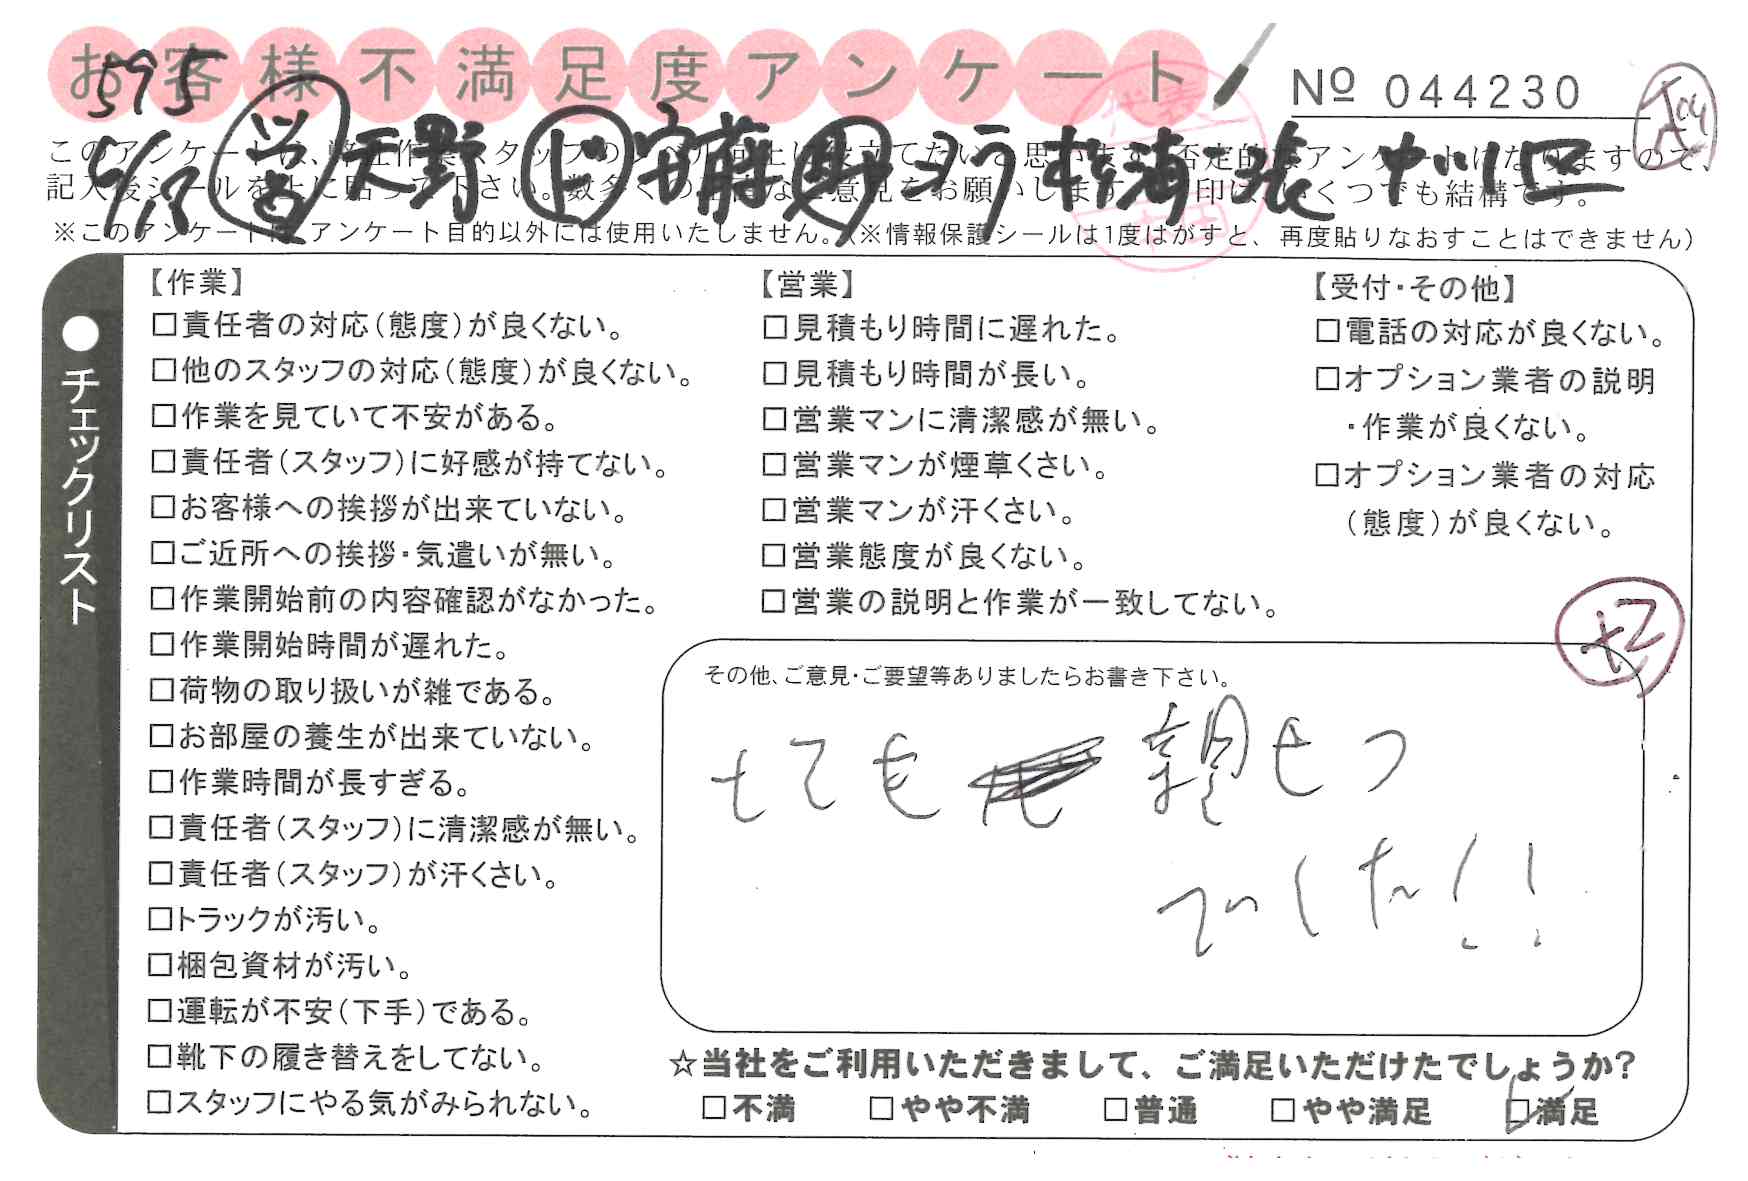 お客様不満足度アンケート
№ 044230
595
6/13 営 天野 ド 安藤 助
このアンケートは、弊社作業スタッフのレベル向上に役立てたいと思います。否定的なアンケートになりますので、
記入後シールを上に貼って下さい。数多くの正直なご意見をお願いします。
※このアンケートは、アンケート目的以外には使用いたしません。(※情報保護シールは1度はがすと、再度貼りなおすことはできません)
●チェックリスト
【作業】
□責任者の対応(態度)が良くない。
□他のスタッフの対応(態度)が良くない。
□作業を見ていて不安がある。
□責任者(スタッフ)に好感が持てない。
□お客様への挨拶が出来ていない。
□ご近所への挨拶・気遣いが無い。
□作業開始前の内容確認がなかった。
□作業開始時間が遅れた。
□荷物の取り扱いが雑である。
□お部屋の養生が出来ていない。
□作業時間が長すぎる。
□責任者(スタッフ)に清潔感が無い。
□責任者(スタッフ)が汗くさい。
□トラックが汚い。
□梱包資材が汚い。
□運転が不安(下手)である。
□靴下の履き替えをしてない。
□スタッフにやる気がみられない。
【営業】
□見積もり時間に遅れた。
□見積もり時間が長い。
□営業マンに清潔感が無い。
□営業マンが煙草くさい。
□営業マンが汗くさい。
□営業態度が良くない。
□営業の説明と作業が一致してない。
【受付・その他】
□電話の対応が良くない。
□オプション業者の説明
・作業が良くない。
□オプション業者の対応
(態度)が良くない。
その他、ご意見・ご要望等ありましたらお書き下さい。
とても 親せつ
でした!!
☆当社をご利用いただきまして、ご満足いただけたでしょうか?
□不満 □やや不満 □普通 □やや満足 □満足